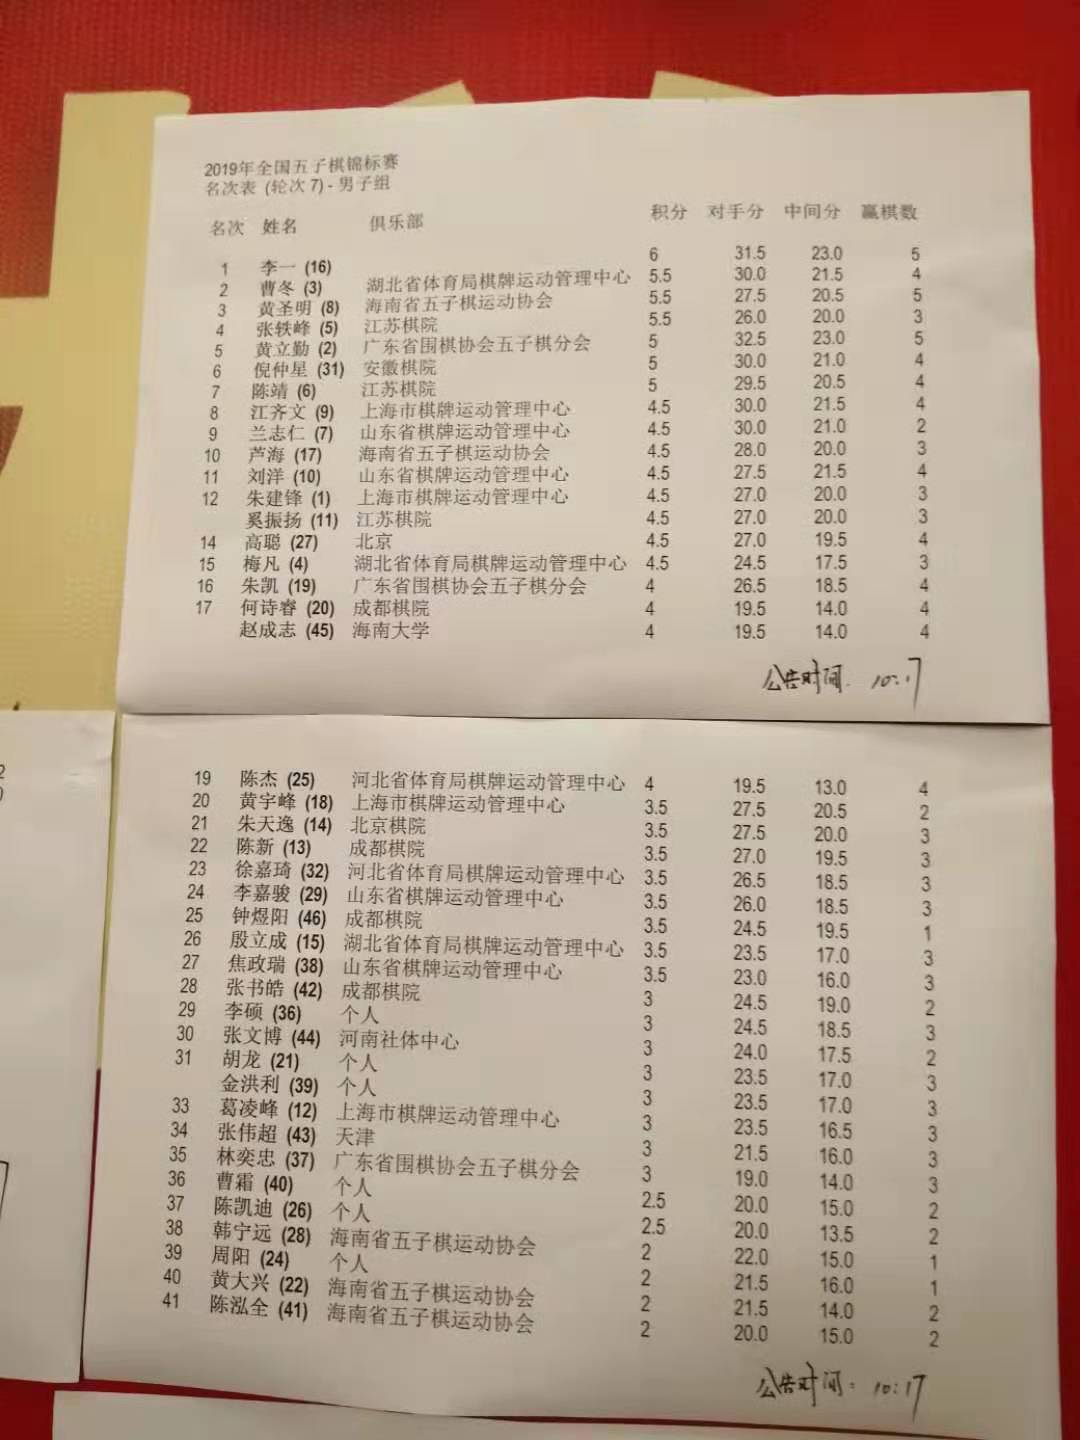 2019年全国五子棋锦标赛
名次表 (轮次 7) - 男子组
名次 姓名 俱乐部 积分 对手分 中间分 赢棋数
1 李一 (16) 6 31.5 23.0 5
2 曹冬 (3) 湖北省体育局棋牌运动管理中心 5.5 30.0 21.5 4
3 黄圣明 (8) 海南省五子棋运动协会 5.5 27.5 20.5 5
4 张轶峰 (5) 江苏棋院 5.5 26.0 20.0 3
5 黄立勤 (2) 广东省围棋协会五子棋分会 5 32.5 23.0 5
6 倪仲星 (31) 安徽棋院 5 30.0 21.0 4
7 陈靖 (6) 江苏棋院 5 29.5 20.5 4
8 江齐文 (9) 上海市棋牌运动管理中心 4.5 30.0 21.5 4
9 兰志仁 (7) 山东省棋牌运动管理中心 4.5 30.0 21.0 2
10 芦海 (17) 海南省五子棋运动协会 4.5 28.0 20.0 3
11 刘洋 (10) 山东省棋牌运动管理中心 4.5 27.5 21.5 4
12 朱建锋 (1) 上海市棋牌运动管理中心 4.5 27.0 20.0 3
奚振扬 (11) 江苏棋院 4.5 27.0 20.0 3
14 高聪 (27) 北京 4.5 27.0 19.5 4
15 梅凡 (4) 湖北省体育局棋牌运动管理中心 4.5 24.5 17.5 3
16 朱凯 (19) 广东省围棋协会五子棋分会 4 26.5 18.5 4
17 何诗睿 (20) 成都棋院 4 19.5 14.0 4
赵成志 (45) 海南大学 4 19.5 14.0 4
公告时间. 10:17
19 陈杰 (25) 河北省体育局棋牌运动管理中心 4 19.5 13.0 4
20 黄宇峰 (18) 上海市棋牌运动管理中心 3.5 27.5 20.5 2
21 朱天逸 (14) 北京棋院 3.5 27.5 20.0 3
22 陈新 (13) 成都棋院 3.5 27.0 19.5 3
23 徐嘉琦 (32) 河北省体育局棋牌运动管理中心 3.5 26.5 18.5 3
24 李嘉骏 (29) 山东省棋牌运动管理中心 3.5 26.0 18.5 3
25 钟煜阳 (46) 成都棋院 3.5 24.5 19.5 1
26 殷立成 (15) 湖北省体育局棋牌运动管理中心 3.5 23.5 17.0 3
27 焦政瑞 (38) 山东省棋牌运动管理中心 3.5 23.0 16.0 3
28 张书皓 (42) 成都棋院 3 24.5 19.0 2
29 李硕 (36) 个人 3 24.5 18.5 3
30 张文博 (44) 河南社体中心 3 24.0 17.5 2
31 胡龙 (21) 个人 3 23.5 17.0 3
金洪利 (39) 个人 3 23.5 17.0 3
33 葛凌峰 (12) 上海市棋牌运动管理中心 3 23.5 16.5 3
34 张伟超 (43) 天津 3 21.5 16.0 3
35 林奕忠 (37) 广东省围棋协会五子棋分会 3 19.0 14.0 3
36 曹霜 (40) 个人 2.5 20.0 15.0 2
37 陈凯迪 (26) 个人 2.5 20.0 13.5 2
38 韩宁远 (28) 海南省五子棋运动协会 2 22.0 15.0 1
39 周阳 (24) 个人 2 21.5 16.0 1
40 黄大兴 (22) 海南省五子棋运动协会 2 21.5 14.0 2
41 陈泓全 (41) 海南省五子棋运动协会 2 20.0 15.0 2
公告时间: 10:17